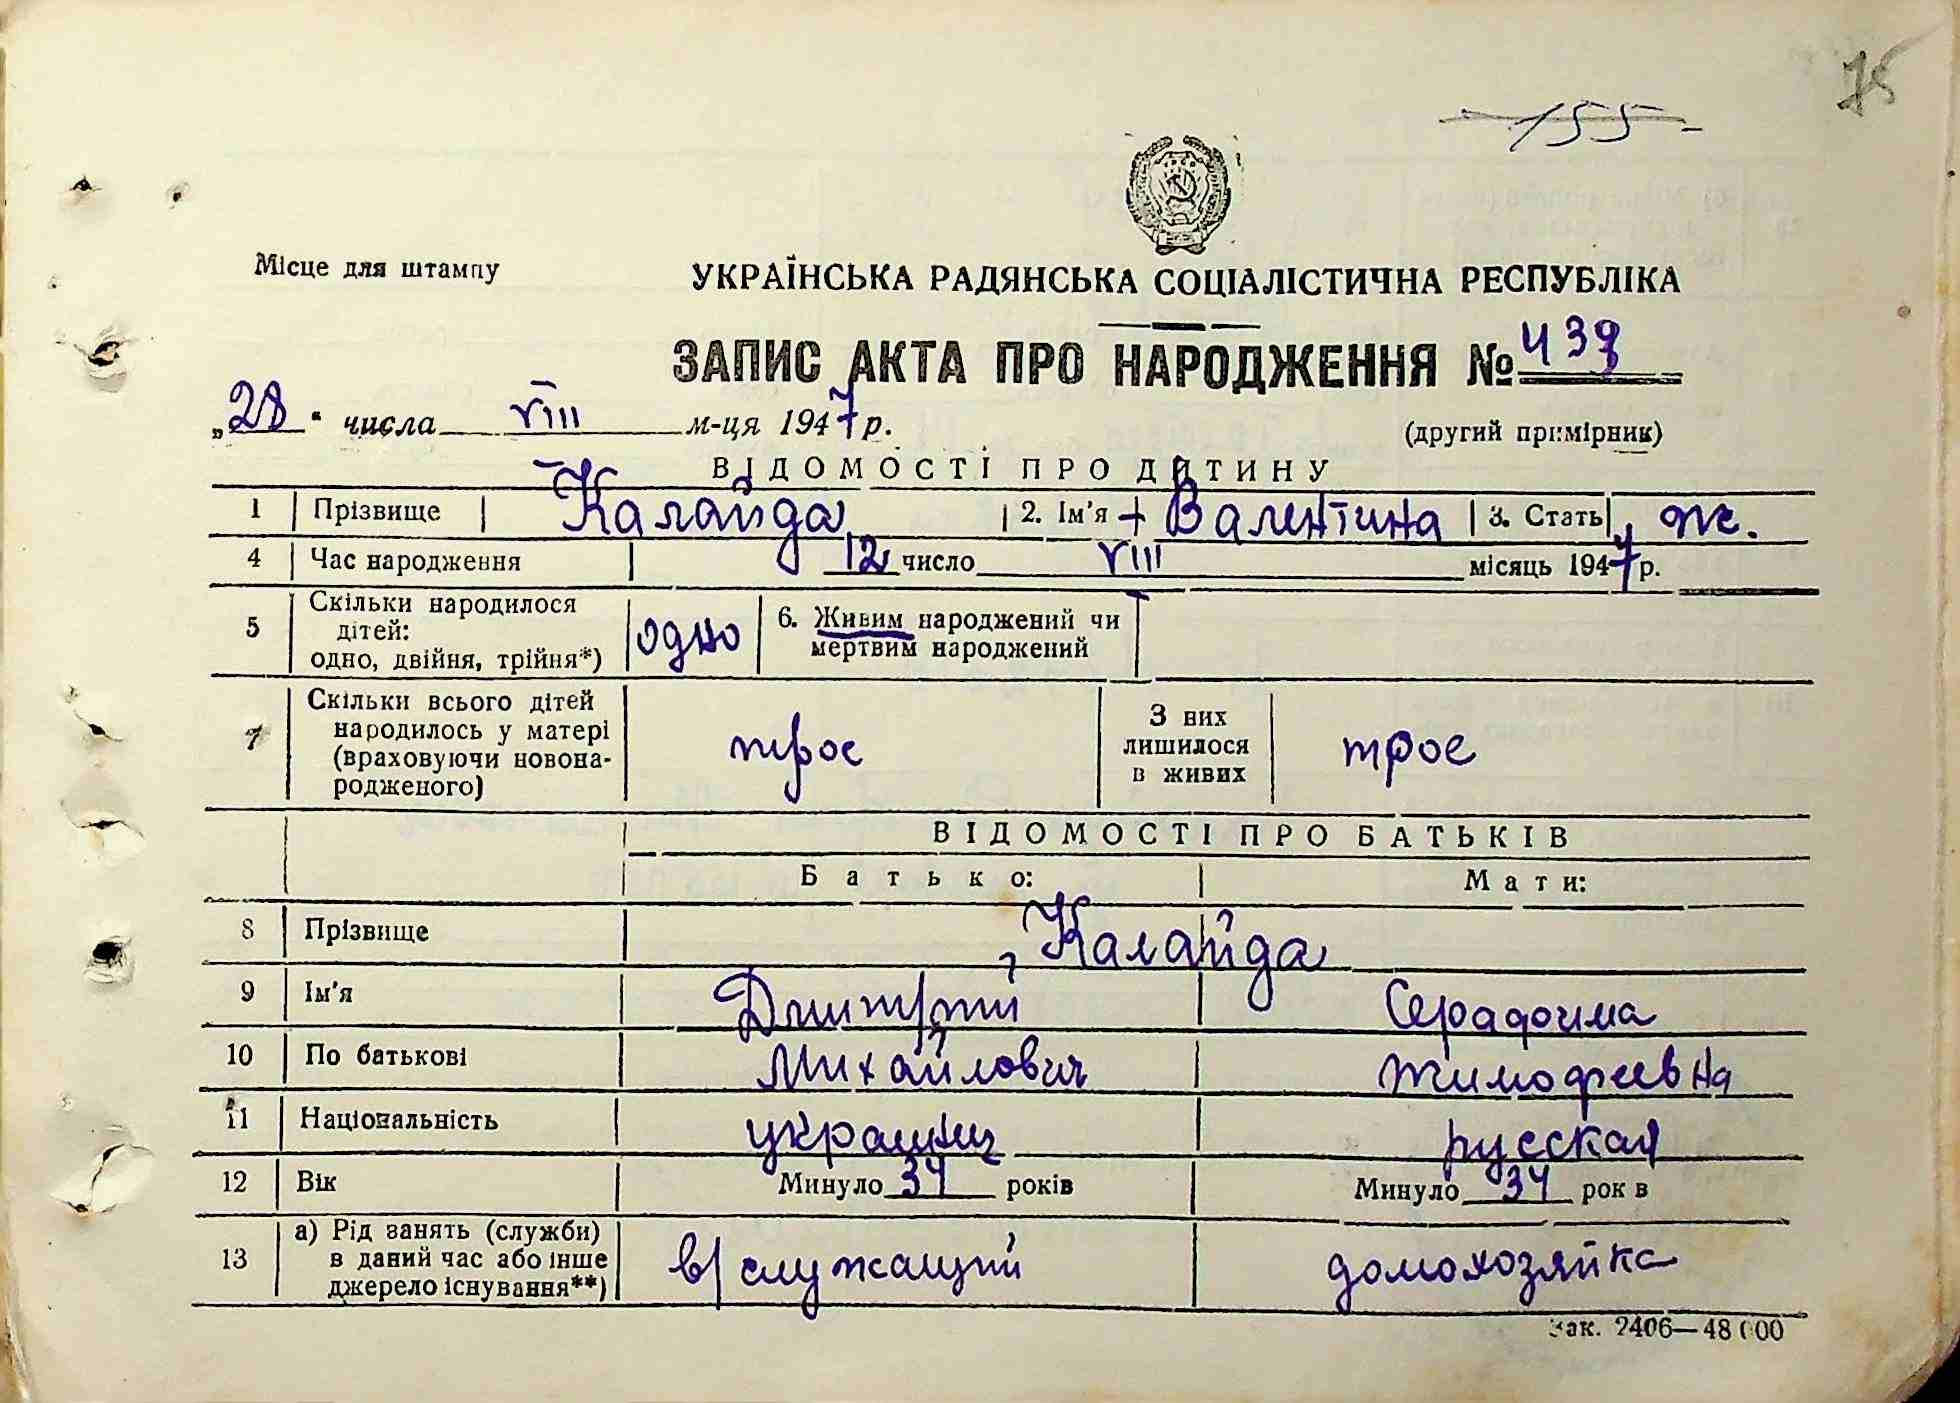 75
155
Місце для штампу
УКРАЇНСЬКА РАДЯНСЬКА СОЦІАЛІСТИЧНА РЕСПУБЛІКА
ЗАПИС АКТА ПРО НАРОДЖЕННЯ № 439
„28" числа VIII м-ця 1947 р.
(другий примірник)
ВІДОМОСТІ ПРО ДИТИНУ
1 Прізвище Калайда 2. Ім'я Валентина 3. Стать ж.
4 Час народження 12 число VIII місяць 1947 р.
5 Скільки народилося дітей: одно, двійня, трійня*) одно 6. Живим народжений чи мертвим народжений
7 Скільки всього дітей народилось у матері (враховуючи новонародженого) трое З них лишилося в живих трое
ВІДОМОСТІ ПРО БАТЬКІВ
Батько: Мати:
8 Прізвище Калайда
9 Ім'я Дмитрий Серафима
10 По батькові Михайлович Тимофеевна
11 Національність украинец русская
12 Вік Минуло 34 років Минуло 34 рок в
13 а) Рід занять (служби) в даний час або інше джерело існування**) в/служащий домохозяйка
Зак. 2406—48000